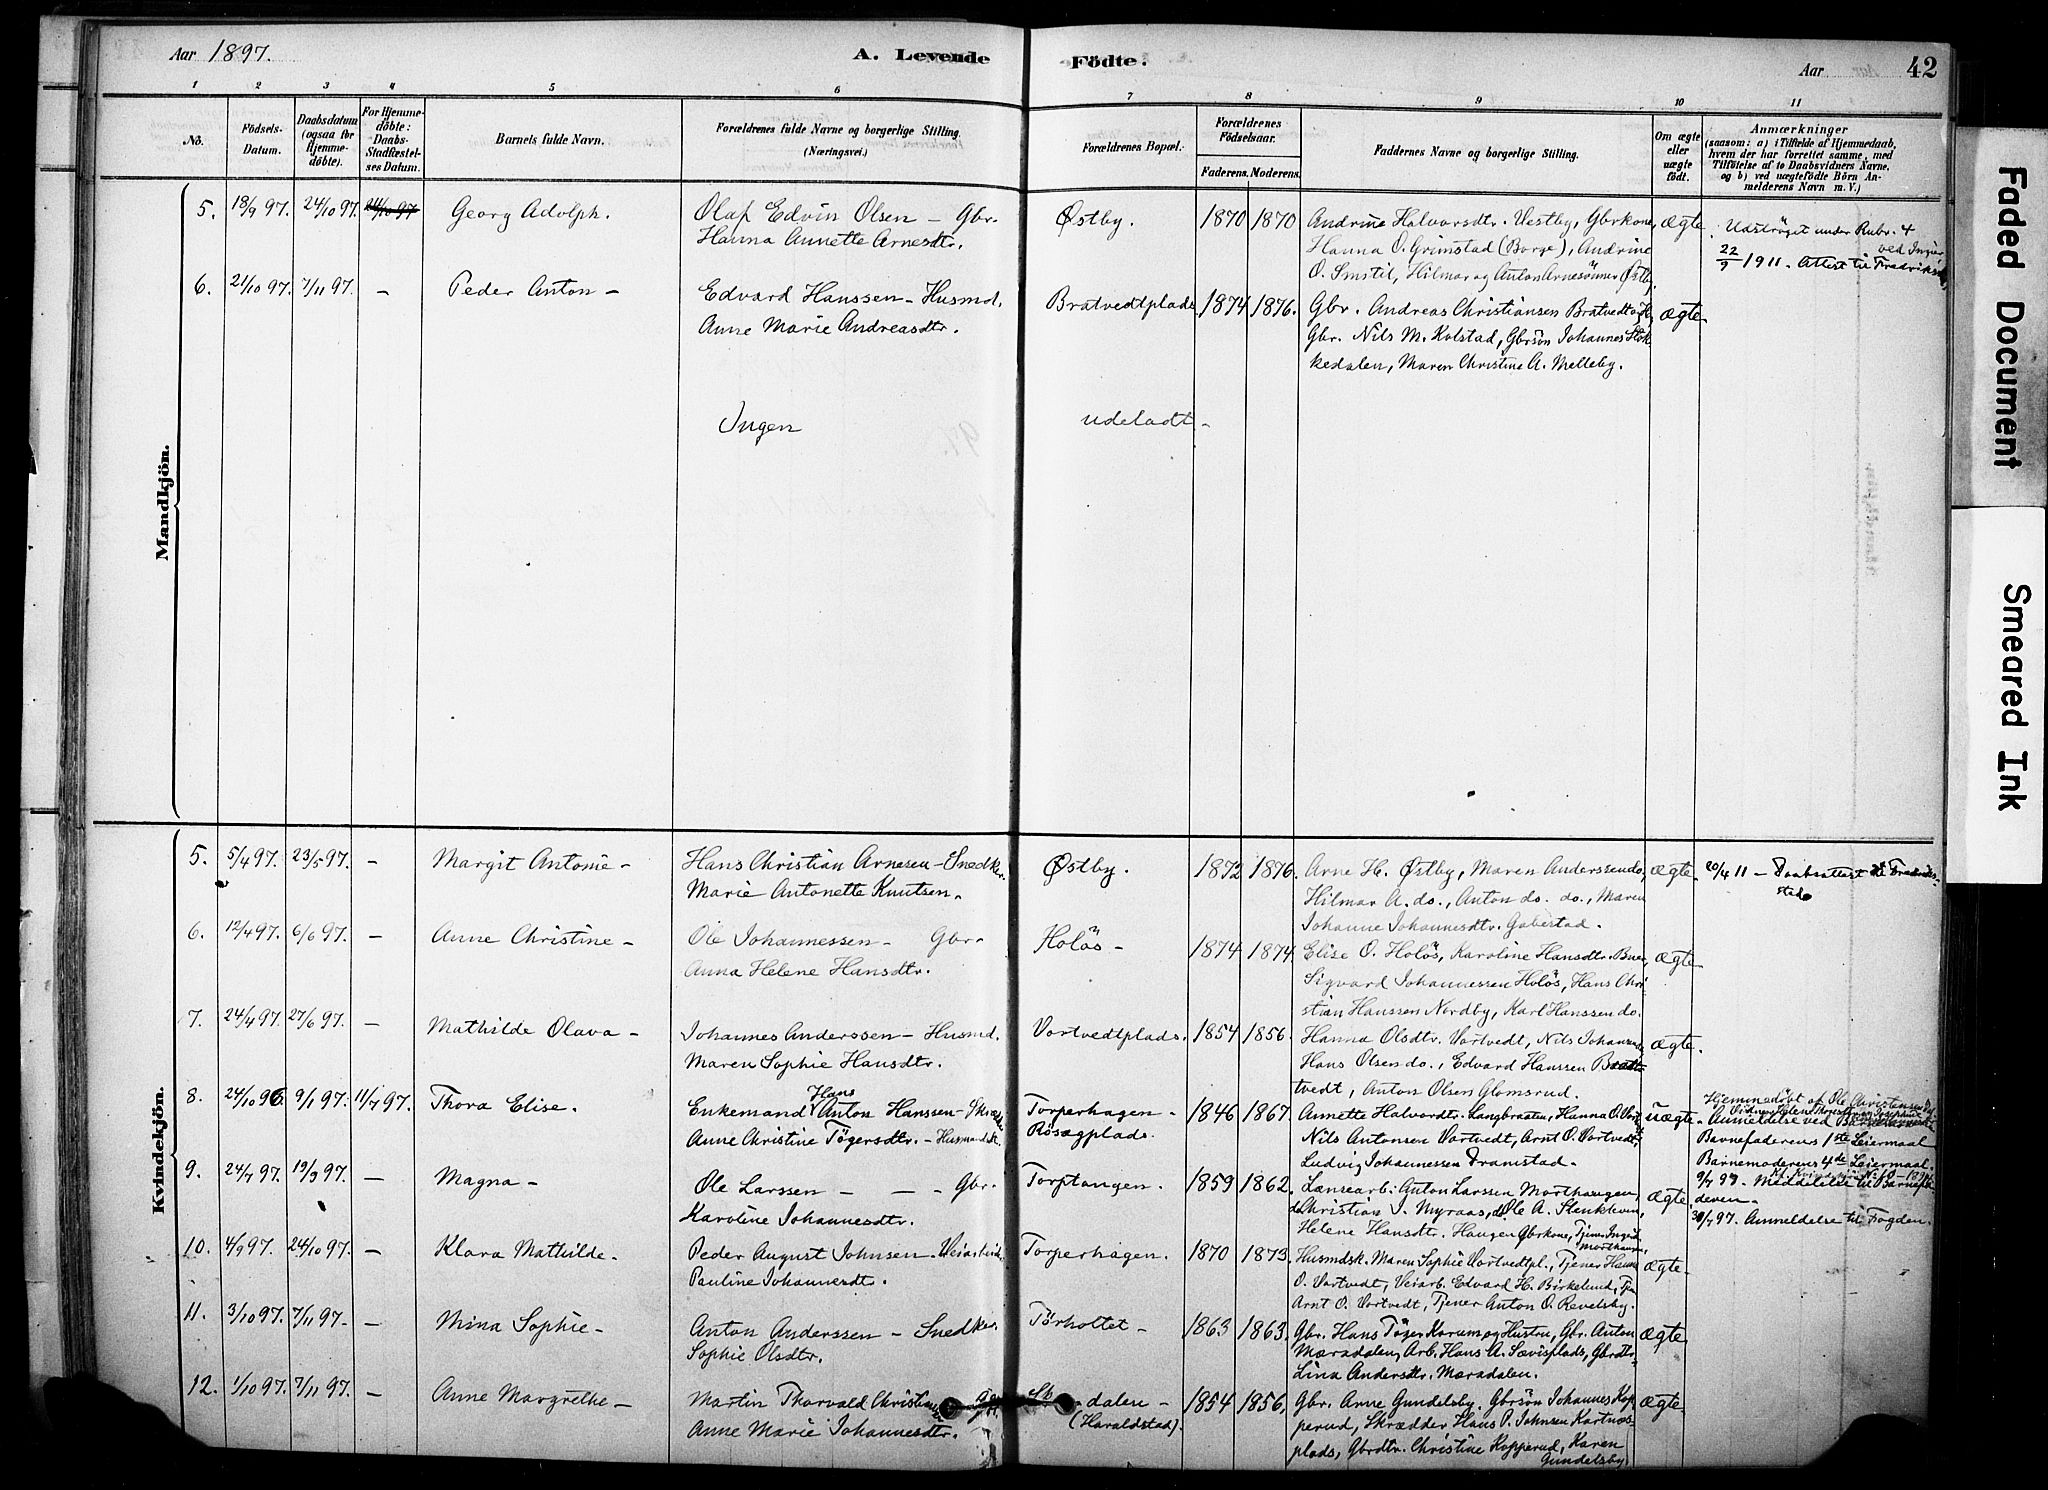 Aar 1897.
A. Levende Födte.
Aar
42
1 2 3 4 5 6 7 8 9 10 11
No.
Födsels-Datum.
Daabsdatum (ogsaa for Hjemme-döbte).
For Hjemme-döbte: Daabs-Stadfæstel-ses Datum.
Barnets fulde Navn.
Forældrenes fulde Navne og borgerlige Stilling.
(Næringsvei.)
Forældrenes Bopæl.
Forældrenes Födselsaar.
Faderens. Moderens.
Faddernes Navne og borgerlige Stilling.
Om ægte eller uægte födt.
Anmærkninger
(saasom: a) i Tilfælde af Hjemmedaab, hvem der har forrettet samme, med Tilföielse af to Daabsvidners Navne, og b) ved uægtefödte Börn An-melderens Navn m. V.)
Mandkjön.
5. 18/9 97. 24/10 97. 24/10 97 Georg Adolph. Olaf Edvin Olsen - Gbr. Østby. 1870 1870 Andrine Halvorsdtr. Vestby, Gbrkone, ægte.
Hanna Annette Arnesdtr. Hanna O. Grimstad (Borge), Andrine
O. Smstil, Hilmar og Anton Arnesönner Østby.
Udströget under Rubr. 4
22/9 1911. Attest til
6. 21/10 97. 7/11 97. - Peder Anton - Edvard Hanssen - Husmd. Bratvedtplads 1874 1876. Gbr. Andreas Christiansen Bratvedt og H., ægte
Anne Marie Andreasdtr. Gbr. Nils M. Kolstad, Gbrsön Johannes Stok-
kedalen, Maren Christine A. Melleby.
Ingen udeladt -
Kvindekjön.
5. 5/4 97. 23/5 97. - Margit Antonie - Hans Christian Arnesen - Snedker. Østby. 1872 1876. Arne H. Østby, Maren Anderssen do, ægte.
Marie Antonette Knutsen. Hilmar A. do., Anton do. do., Maren
Johanne Johannesdtr. Gabestad.
20/4 11 - Daabsattest til Fredrik-
stad
6. 12/4 97. 6/6 97. - Anne Christine - Ole Johannessen - Gbr. Holös - 1874 1874 Elise O. Holös, Karoline Hansdtr. Buer, ægte
Anna Helene Hansdtr. Sigvard Johannessen Holös, Hans Chri-
stian Hanssen Nordby, Karl Hanssen do.
7. 24/4 97. 27/6 97. - Mathilde Olava - Johannes Anderssen - Husmd. Vortvedtplads. 1854 1856. Hanna Olsdtr. Vortvedt, Nils Johannes ægte.
Maren Sophie Hansdtr. Hans Olsen do., Edvard Hanssen Brat-
tvedt, Anton Olsen Glomsrud.
8. 24/10 96. 9/1 97. 11/7 97. Thora Elise. Enkemand Hans Anton Hanssen - Torperhagen - 1846 1867. Annette Halvordtr. Langbraaten, Hanna O. Vort uægte
Anne Christine Tögersdtr. - Husmandsk. Rösægplads. Nils Antonsen Vortvedt, Arnt O. Vortvedt,
Ludvig Johannessen Tramstad.
Hjemmedöbt af Ole Christensen
Anmeldelse ved
Barnefaderens 1ste Leiermaal
Barnemoderens 4de Leiermaal.
9/7 97. Meddelelse til Barnefa-
deren -
30/7 97. Anmeldelse til Fogden.
9. 24/7 97. 19/9 97. - Magna - Ole Larssen - - - Gbr. Torptangen. 1859 1862. Lænsearb. Anton Larssen Morthaugen, ægte.
Karoline Johannesdtr. do Christian J. Myraas, do Ole A. Stenkleven,
Helene Hansdtr. Haugen Gbrkone, Tjener Ingrid Morthaugen
10. 4/9 97. 24/10 97. - Klara Mathilde - Peder August Johnsen - Veiarbeid. Torperhagen. 1870 1873. Husmdsk. Maren Sophie Vortvedtpl., Tjener Hanna ægte -
Pauline Johannesdtr. O. Vortvedt, Veiarb. Edvard H. Birkelund, Tj.
Arnt O. Vortvedt, Tjener Anton O. Revelsby.
11. 3/10 97. 7/11 97 - - Mina Sophie - Anton Anderssen - Snedker. Törholtet - 1863 1863. Gbr. Hans Töger Karum og Hustru, Gbr. Anton ægte
Sophie Olsdtr. Mæradalen, Arb. Hans A. Sævisplads, Gbrdtr.
Lina Andersdtr. Mæradalen.
12. 1/10 97. 7/11 97. - Anne Margrethe - Martin Thorvald Christian dalen - 1854 1856, Gbr. Arne Gundelsby. Gbrsön Johannes Kop- ægte
Anne Marie Johannesdtr. (Haraldstad). perud, Skrædder Hans P. Johnsen Kartnes-
plads, Gbrdtr. Christine Kopperud, Karen
Gundelsby.
Faded Document
Smeared Ink